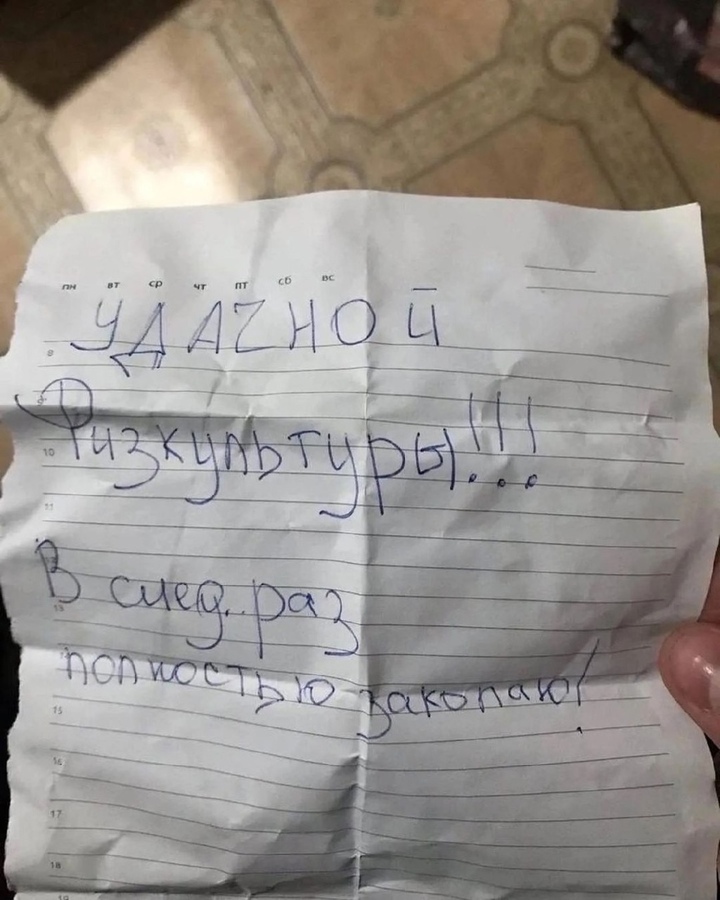 пн вт ср чт пт сб вс
УДАЧНОЙ
Физкультуры!!!
В след. раз
полностью закопаю!
8
9
10
11
13
15
16
17
18
19